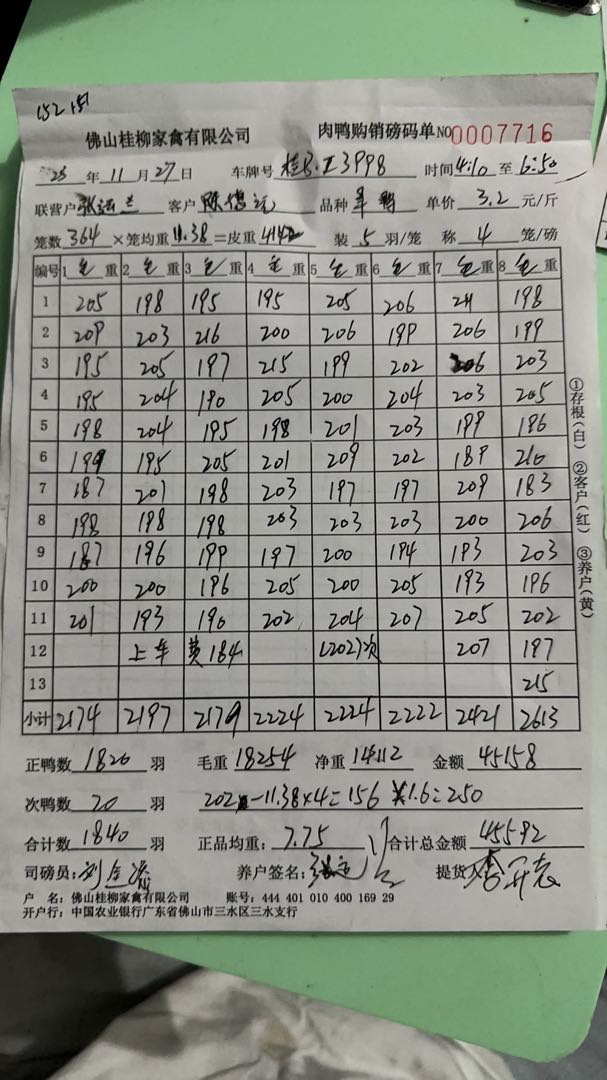 152 151
佛山桂柳家禽有限公司 肉鸭购销磅码单NO0007716
25 年 11 月 27 日 车牌号 时间4:10 至 6:50
联营户 客户 品种 单价 3.2 元/斤
笼数 364 ×笼均重 11.38 =皮重 4142 装 5 羽/笼 称 4 笼/磅
编号 1 重 2 重 3 重 4 重 5 重 6 重 7 重 8 重
1 205 198 195 195 205 206 211 198
2 209 203 216 200 206 199 206 199
3 195 205 197 215 199 202 206 203
4 195 204 190 205 200 204 203 205
5 198 204 195 198 201 203 199 196
6 199 195 205 201 209 202 189 210
7 187 201 198 203 197 197 209 183
8 198 198 198 203 203 203 200 206
9 187 196 199 197 200 194 193 203
10 200 200 196 205 200 205 193 196
11 201 193 190 202 204 207 205 202
12 上车 184 (202)次 207 197
13 215
小计 2174 2197 2179 2224 2224 2222 2421 2613
正鸭数 1820 羽 毛重 18254 净重 14112 金额 45158
次鸭数 20 羽 202 -11.38×4=156 ×1.6=250
合计数 1840 羽 正品均重: 7.75 合计总金额 45592
司磅员: 养户签名: 提货
户 名: 佛山桂柳家禽有限公司 账号: 444 401 010 400 169 29
开户行: 中国农业银行广东省佛山市三水区三水支行
①存根(白) ②客户(红) ③养户(黄)